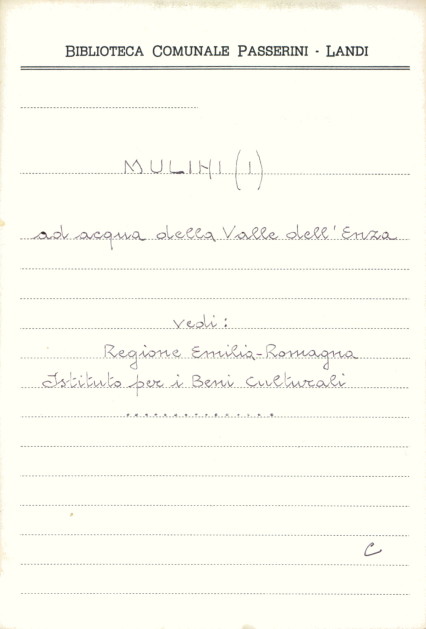 BIBLIOTECA COMUNALE PASSERINI - LANDI
MULINI (I)
ad acqua della Valle dell'Enza
vedi:
Regione Emilia-Romagna
Istituto per i Beni Culturali
...............
C